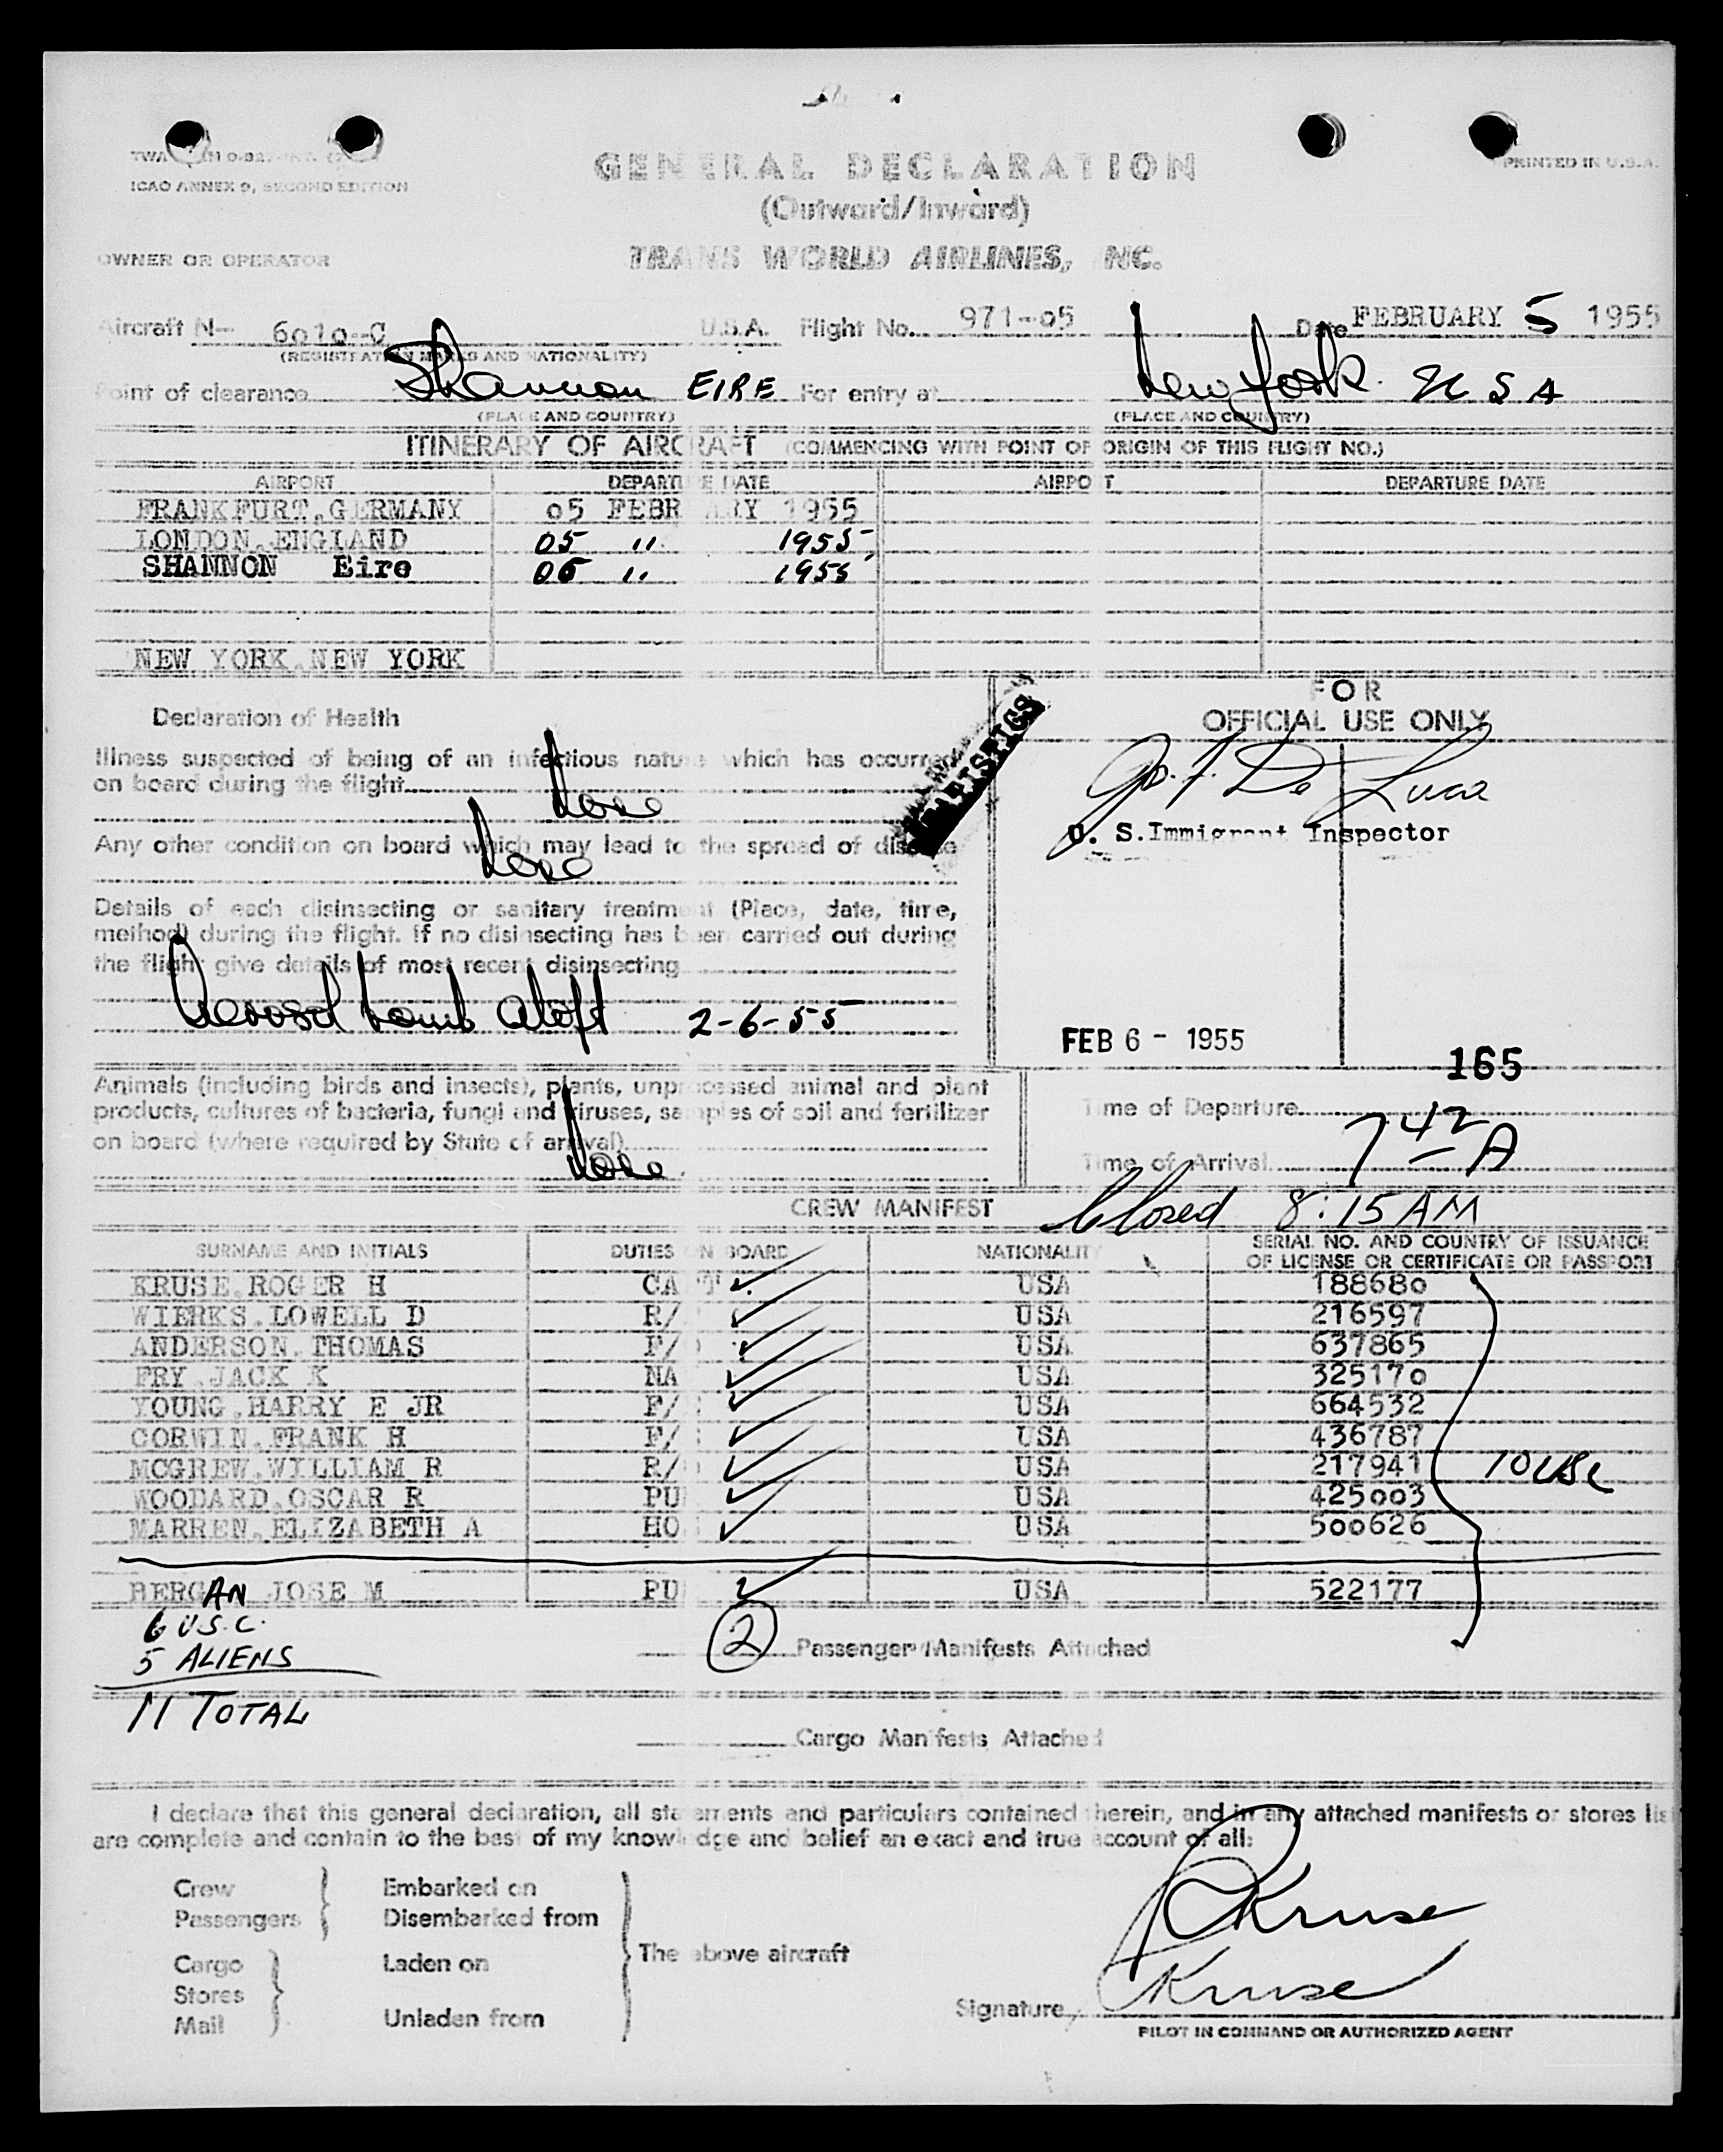 ICAO ANNEX 9, SECOND EDITION
PRINTED IN U.S.A.
GENERAL DECLARATION
(Outward/Inward)
OWNER OR OPERATOR TRANS WORLD AIRLINES, INC.
Aircraft N- 6010-C U.S.A. Flight No. 971-05 Date FEBRUARY 5 1955
(REGISTRATION MARKS AND NATIONALITY)
Point of clearance Shannon EIRE For entry at New York. USA
(PLACE AND COUNTRY) (PLACE AND COUNTRY)
ITINERARY OF AIRCRAFT (COMMENCING WITH POINT OF ORIGIN OF THIS FLIGHT NO.)
AIRPORT DEPARTURE DATE AIRPORT DEPARTURE DATE
FRANKFURT, GERMANY 05 FEBRUARY 1955
LONDON, ENGLAND 05 " 1955
SHANNON Eire 06 " 1955
NEW YORK, NEW YORK
Declaration of Health
Illness suspected of being of an infectious nature which has occurred
on board during the flight
None
Any other condition on board which may lead to the spread of disease
None
Details of each disinsecting or sanitary treatment (Place, date, time,
method) during the flight. If no disinsecting has been carried out during
the flight give details of most recent disinsecting
Aerosol bomb aloft 2-6-55
STATISTICS
FOR
OFFICIAL USE ONLY
Jos. F. De Luca
U. S. Immigrant Inspector
FEB 6 - 1955
165
Animals (including birds and insects), plants, unprocessed animal and plant
products, cultures of bacteria, fungi and viruses, samples of soil and fertilizer
on board (where required by State of arrival)
None.
Time of Departure
Time of Arrival 7 42 A
CREW MANIFEST Closed 8:15 AM
SURNAME AND INITIALS DUTIES ON BOARD NATIONALITY SERIAL NO. AND COUNTRY OF ISSUANCE
OF LICENSE OR CERTIFICATE OR PASSPORT
KRUSE, ROGER H CAPT USA 188680
WIERKS, LOWELL D R/ USA 216597
ANDERSON, THOMAS F/ USA 637865
FRY, JACK K NA USA 325170
YOUNG, HARRY E JR F/ USA 664532
CORWIN, FRANK H F/ USA 436787
MCGREW, WILLIAM R R/ USA 217941 10 USC
WOODARD, OSCAR R PU USA 425003
MARREN, ELIZABETH A HO USA 500626
BERGAN JOSE M PU USA 522177
6 U.S.C.
5 ALIENS
11 TOTAL
2 Passenger Manifests Attached
Cargo Manifests Attached
I declare that this general declaration, all statements and particulars contained herein, and in any attached manifests or stores lis
are complete and contain to the best of my knowledge and belief an exact and true account of all:
Crew
Passengers
Embarked on
Disembarked from
Cargo
Stores
Mail
Laden on
Unladen from
The above aircraft
RKruse
Signature RKruse
PILOT IN COMMAND OR AUTHORIZED AGENT